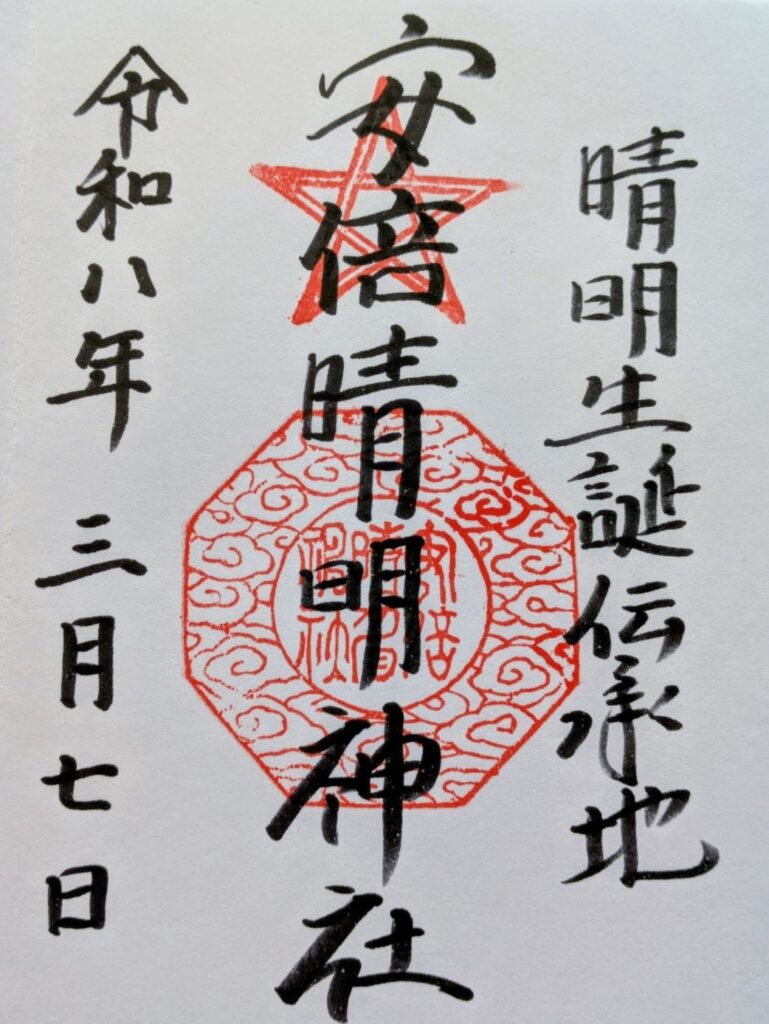 晴明生誕伝承地
安倍晴明神社
令和八年 三月七日
安倍
晴明
神社